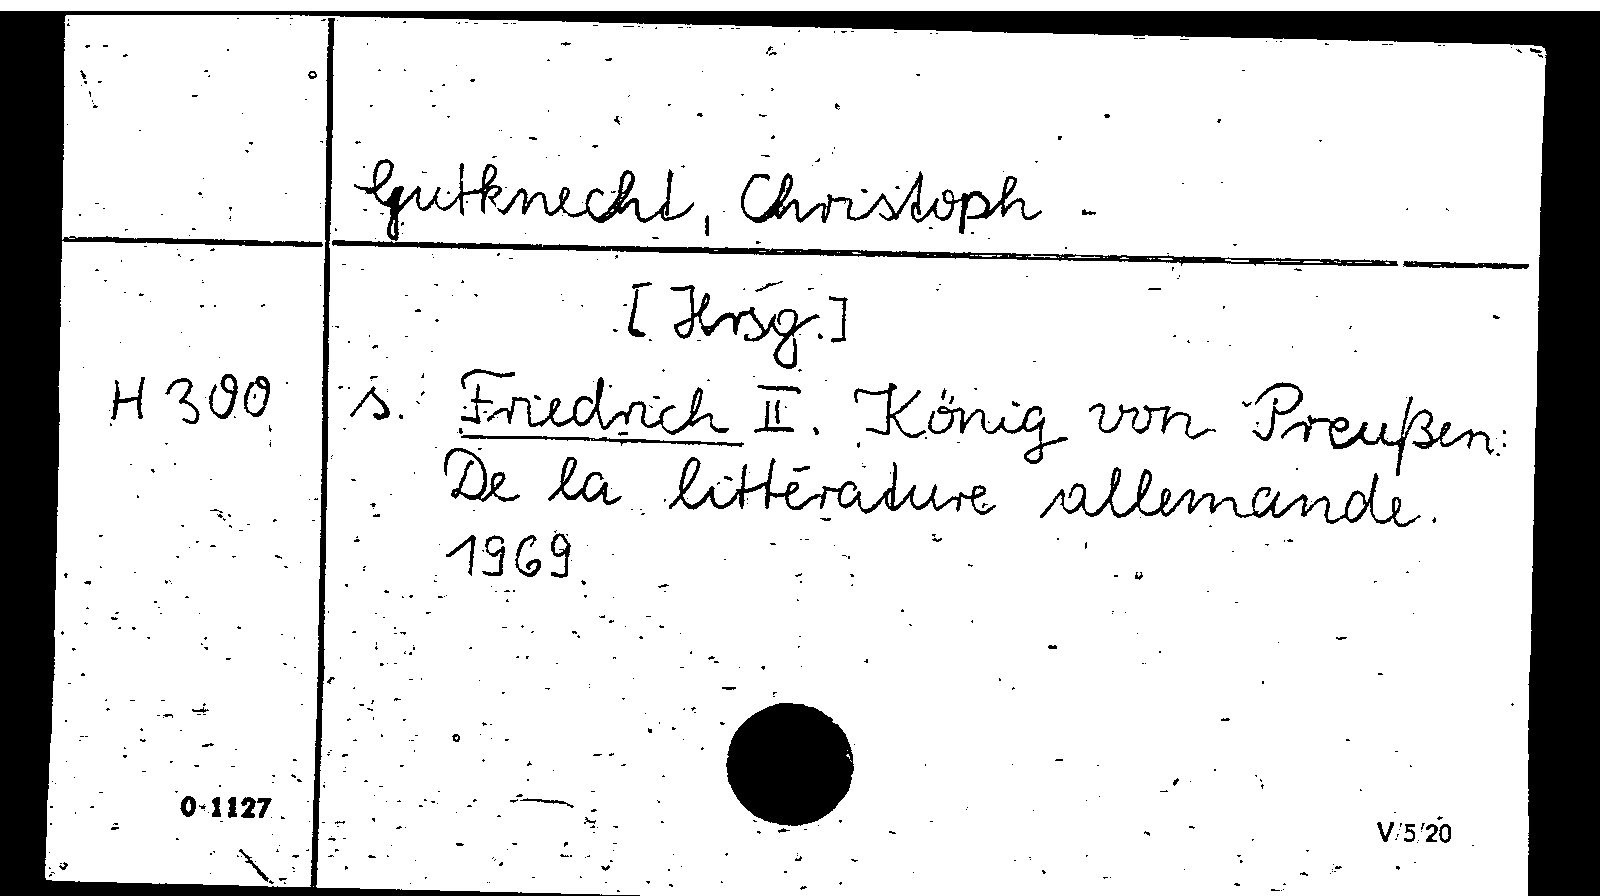 Gutknecht, Christoph -
[Hrsg.]
H 300 s. Friedrich II. König von Preußen:
De la littérature allemande.
1969.
0-1127
V/5/20